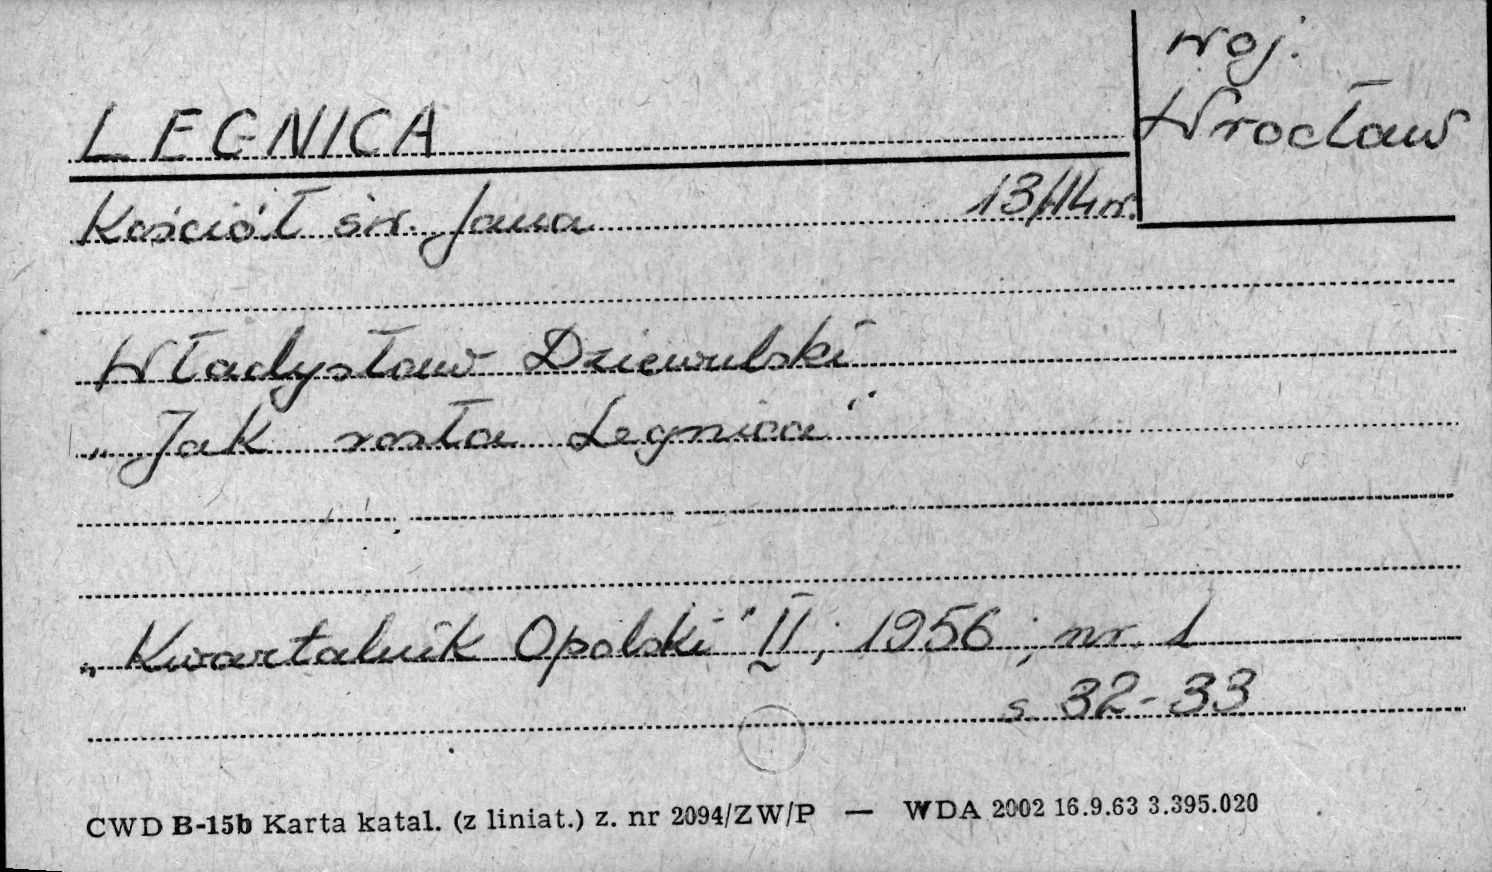 woj.
Wrocław
LEGNICA
Kościół św. Jana 13/14 w.
Władysław Dziewulski
„Jak rosła Legnica"
„Kwartalnik Opolski" II; 1956; nr. 1
s. 32-33
CWD B-15b Karta katal. (z liniat.) z. nr 2094/ZW/P — WDA 2002 16.9.63 3.395.020